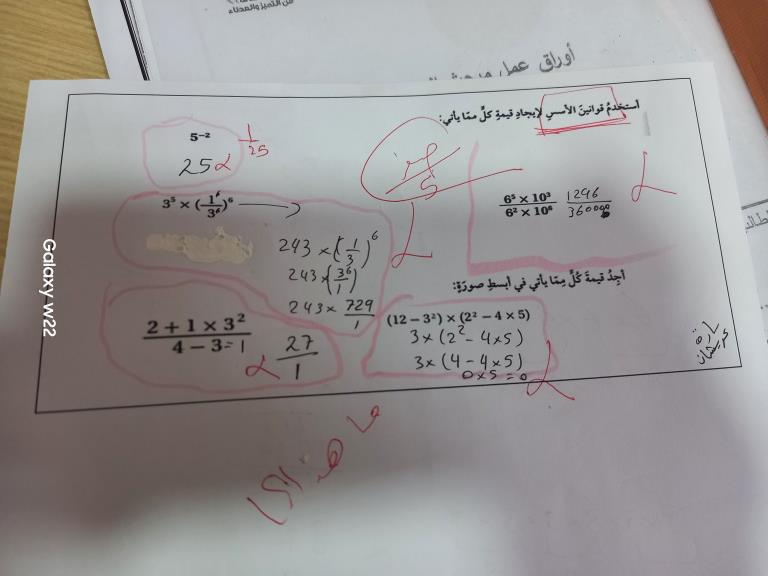 من التميز والعطاء
أوراق عمل
أستخدمُ قوانينَ الأسسِ لإيجادِ قيمةِ كلٍّ ممّا يأتي:
5⁻²
25
1/25
3⁵ × (1/3)⁶
243 × (1/3)⁶
243 × (3⁶/1)
243 × 729/1
(6⁵ × 10³)/(6² × 10⁶) 1296/360000
5
أجِدُ قيمةَ كُلٍّ مِمّا يأتي في أبسطِ صورَةٍ:
(2 + 1 × 3²)/(4 − 3) = 1
27/1
(12 − 3²) × (2² − 4 × 5)
3 × (2² − 4 × 5)
3 × (4 − 4 × 5)
0 × 5 = 0
Galaxy w22